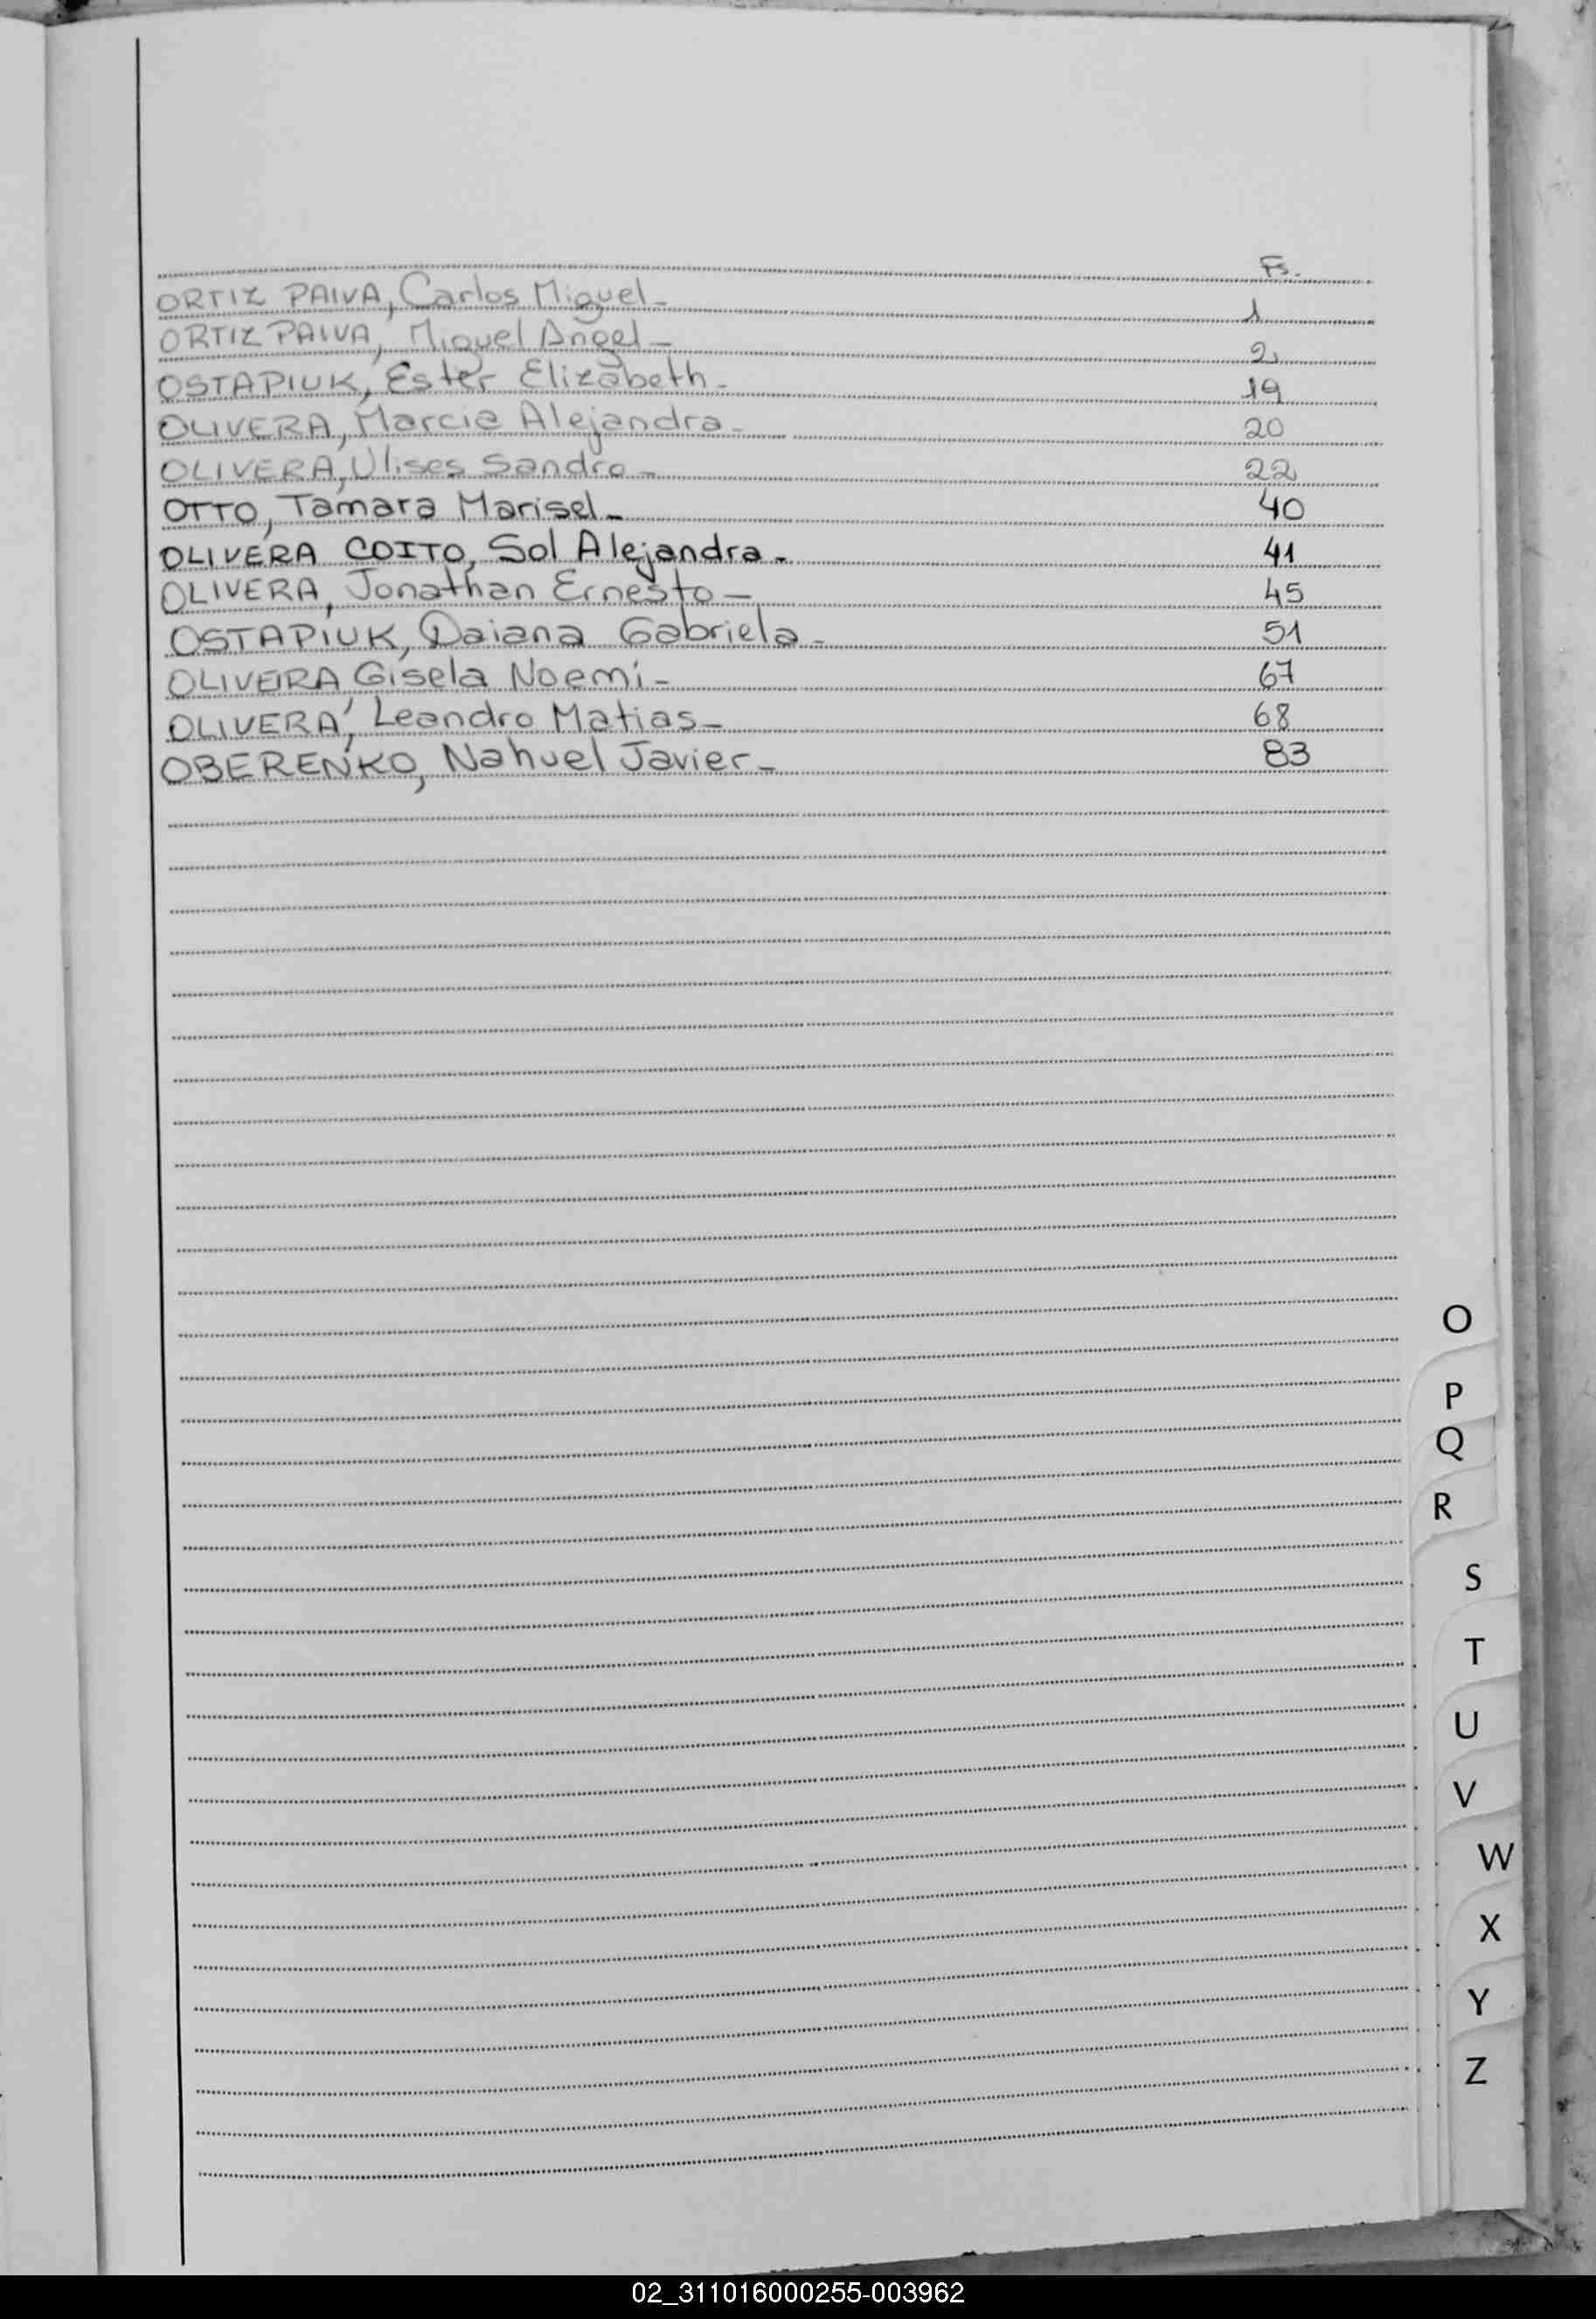 Fs.
ORTIZ PAIVA, Carlos Miguel- 1
ORTIZ PAIVA, Miguel Angel- 2
OSTAPIUK, Ester Elizabeth- 19
OLIVERA, Marcia Alejandra- 20
OLIVERA, Ulises Sandro- 22
OTTO, Tamara Marisel- 40
OLIVERA COITO, Sol Alejandra- 41
OLIVERA, Jonathan Ernesto- 45
OSTAPIUK, Daiana Gabriela- 51
OLIVEIRA Gisela Noemi- 67
OLIVERA, Leandro Matias- 68
OBERENKO, Nahuel Javier- 83
O
P
Q
R
S
T
U
V
W
X
Y
Z
02_311016000255-003962